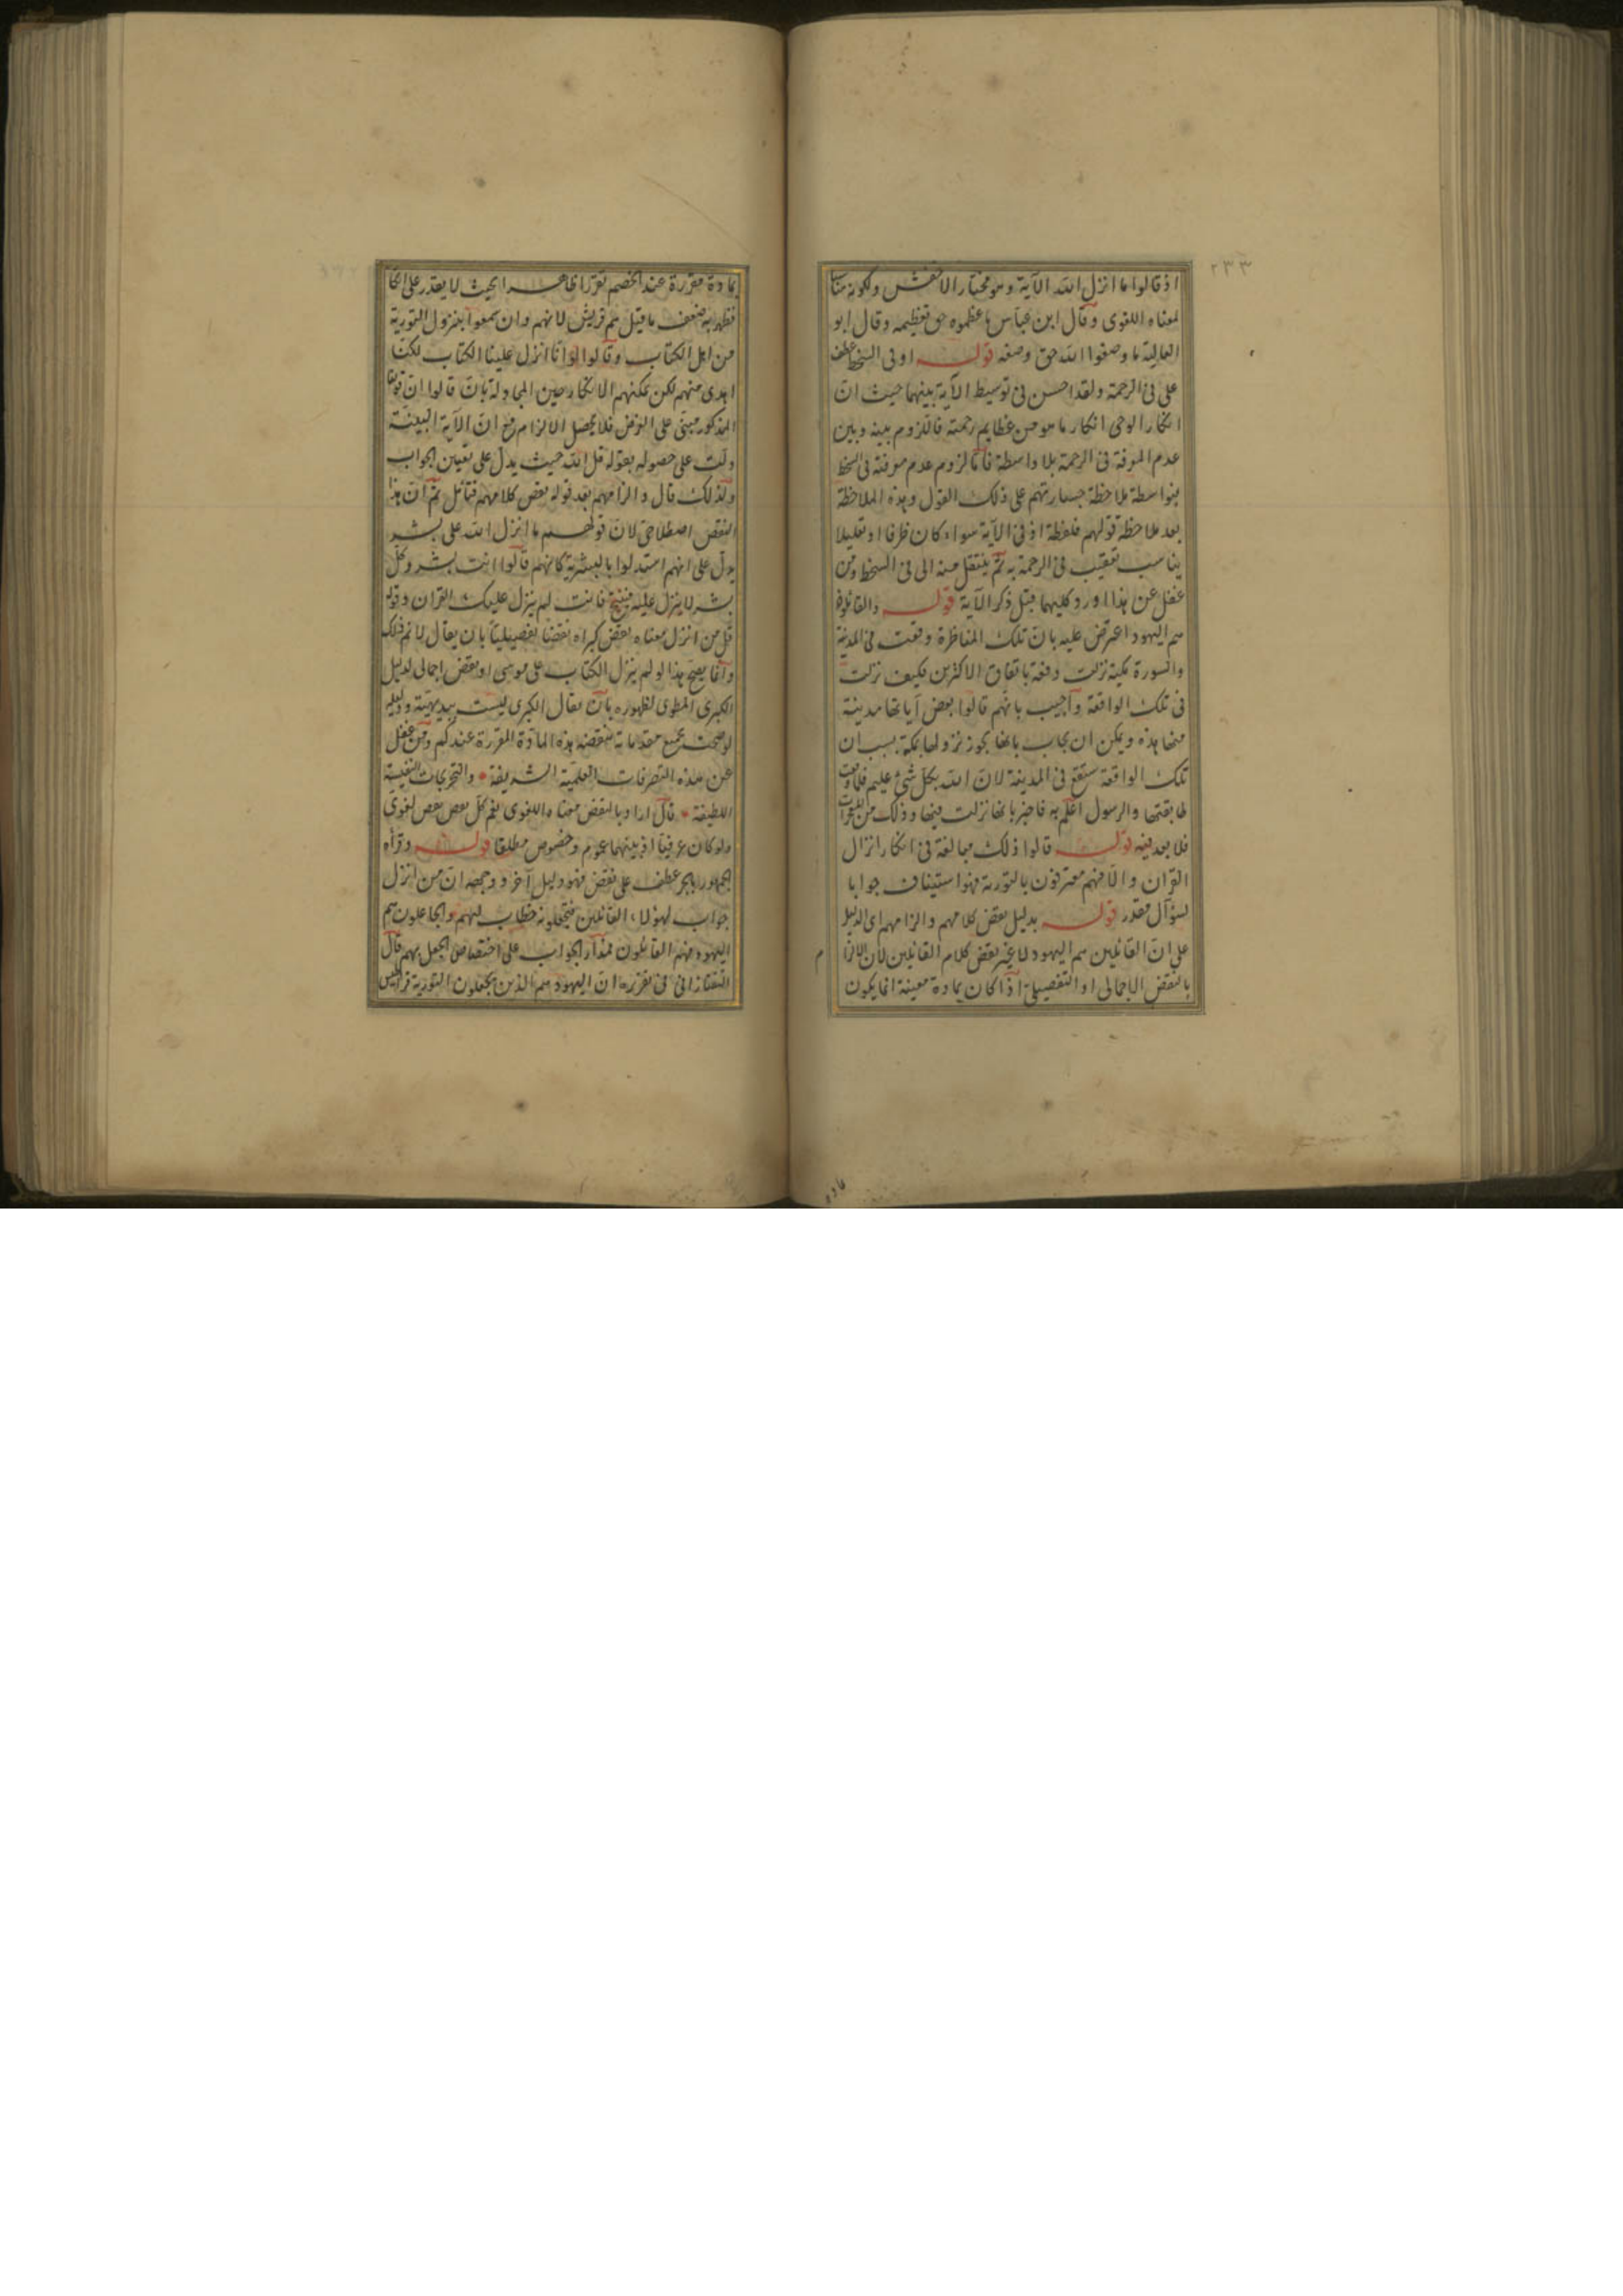 ٢٣٣
اذ قالوا ما انزل الله الآية وهو مختار الاخفش ولكونه مناسبا
لمعناه اللغوى وقال ابن عباس ما عظموه حق تعظيمه وقال ابو
العالية ما وصفوا الله حق وصفه قوله او فى السخط عطف
على فى الرحمة ولقد احسن فى توسيط الآية بينهما حيث ان
انكار الوحى انكار ما هو من عظايم رحمته فاللزوم بينه وبين
عدم المعرفة فى الرحمة بلا واسطة فاما لزوم عدم معرفته فى السخط
بنواسطة ملاحظة جسارتهم على ذلك القول وهذه الملاحظة
بعد ملاحظة قولهم فلفظة اذ فى الآية سواء كان ظرفا او تعليلا
يناسب تعقيب فى الرحمة به ثم ينتقل منه الى فى السخط ومن
غفل عن هذا اورد كليهما قبل ذكر الآية قوله والقائلون
هم اليهود اعترض عليه بان تلك المناظرة وقعت فى المدينة
والسورة مكية نزلت دفعة باتفاق الاكثرين فكيف نزلت
فى تلك الواقعة واجيب بانهم قالوا بعض آياتها مدينة
منها هذه ويمكن ان يجاب بانها يجوز نزولها بمكة بسبب ان
تلك الواقعة ستقع فى المدينة لان الله بكل شئ عليم فلما وقعت
طابقتها والرسول اعلم به فاخبر بانها نزلت فيها وذلك من المعجزات
فلا بعد فيه قوله قالوا ذلك مبالغة فى انكار انزال
القرآن والا فهم معترفون بالتورية فهو استيناف جوابا
لسؤال مقدر قوله بدليل نقض كلامهم والزامهم اى الدليل
على ان القائلين هم اليهود لا غير نقض كلام القائلين لان الالزام
بالنقض الاجمالى او التفصيلى اذا كان بمادة معينة انما يكون
بمادة مقررة عند الخصم تقررا ظاهرا بحيث لا يقدر على انكارها
فظهر به ضعف ما قيل هم قريش لانهم وان سمعوا بنزول التورية
من اهل الكتاب وقالوا لو انا انزل علينا الكتاب لكنا
اهدى منهم لكن يمكنهم الانكار حين المجادلة بان قالوا ان قولنا
المذكور مبنى على الفرض فلا يحصل الالزام مع ان الآية البينة
دلت على حصوله بقوله قل الله حيث يدل على تعيين الجواب
ولذلك قال والزامهم بعد قوله نقض كلامهم فتأمل ثم ان هذا
النقض اصطلاحى لان قولهم ما انزل الله على بشر
يدل على انهم استدلوا بالبشرية كانهم قالوا انت بشر وكل
بشر لا ينزل عليه فينتج فانت لم ينزل عليك القرآن وقوله
قل من انزل معناه نقض كبراه نقضا تفصيليا بان يقال لانم ذلك
وانما يصح هذا لو لم ينزل الكتاب على موسى او نقض اجمالى لدليل
الكبرى المطوى لظهوره بان يقال الكبرى ليست ببديهية ودليله
لو صحت بجميع مقدماته ينقضه هذه المادة المقررة عندكم ومن غفل
عن هذه التصرفات العلمية الشريفة والتحريجات النفيسة
اللطيفة قال اراد بالنقض معناه اللغوى نعم كل نقض نقض لغوى
ولو كان عرفيا اذ بينهما عموم وخصوص مطلقا قوله وقرأه
الجمهور بالجر عطف على نقض فهو دليل آخر ووجهه ان من انزل
جواب لهؤلاء القائلين فتجعلونه خطاب لهم والجاعلون هم
اليهود فهم القائلون فمدار الجواب على اختصاص الجعل بهم قال
التفتازانى فى تقريره ان اليهود هم الذين يجعلون التورية قراطيس